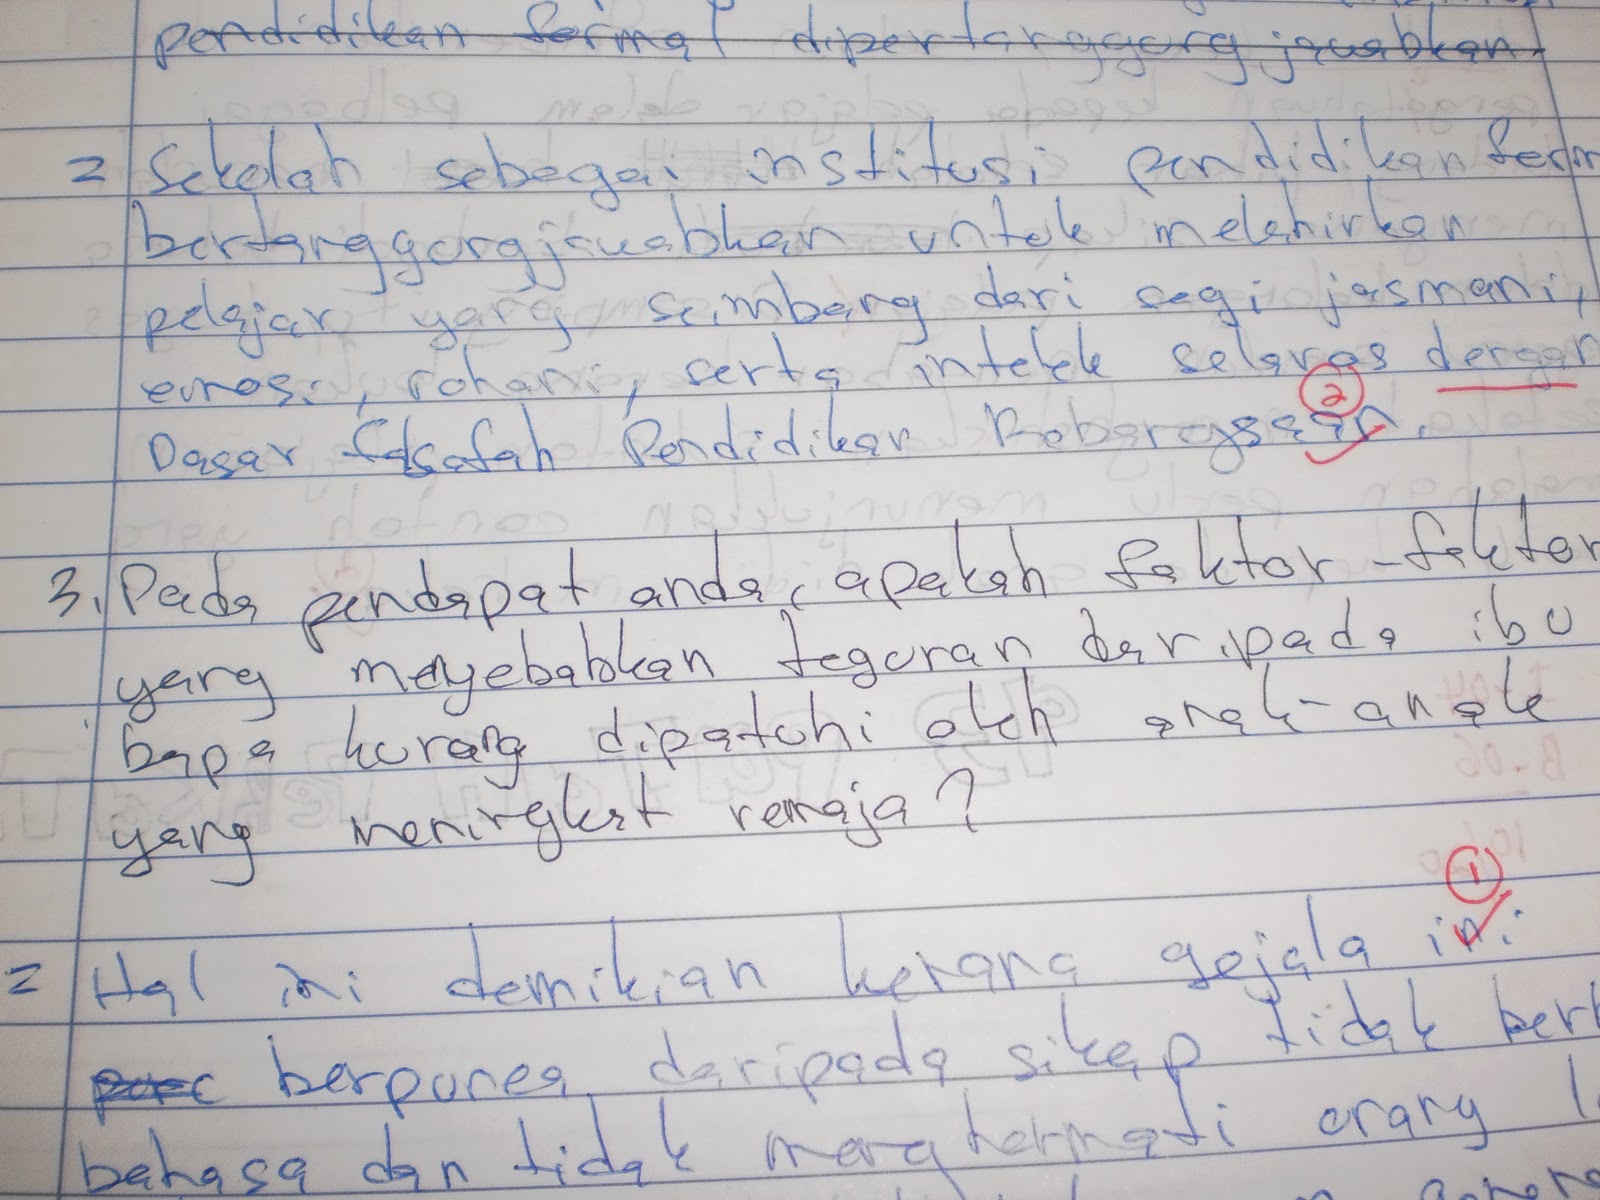 pendidikan formal dipertanggungjawabkan
2 Sekolah sebagai institusi pendidikan form
bertanggungjawabkan untuk melahirkan
pelajar yang seimbang dari segi jasmani,
emosi, rohani, serta intelek selaras dengan
2
Dasar falsafah Pendidikan Kebangsaan.
3. Pada pendapat anda, apakah faktor-faktor
yang menyebabkan teguran daripada ibu
bapa kurang dipatuhi oleh anak-anak
yang meningkat remaja?
1
2 Hal ini demikian kerana gejala ini
berpunca daripada sikap tidak berb
bahasa dan tidak menghormati orang l